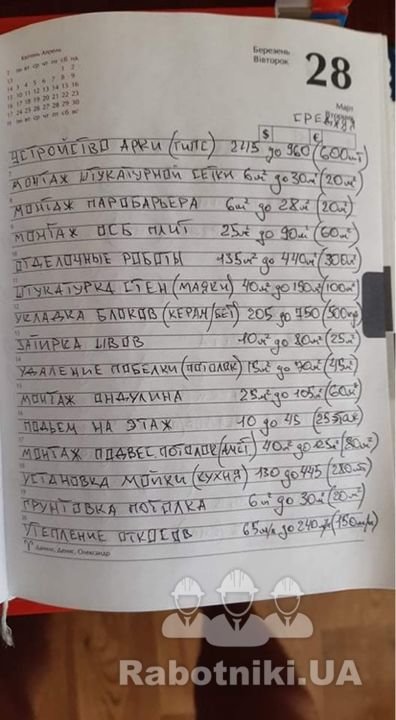 Квітень Апрель
пн вт ср чт пт сб нд
1 2
3 4 5 6 7 8 9
10 11 12 13 14 15 16
17 18 19 20 21 22 23
24 25 26 27 28 29 30
Березень
Вівторок
28
Март
Вторник
$ €
УСТРОЙСТВО АРКИ (ГИПС) 245 до 960 (600шт)
МОНТАЖ ШТУКАТУРНОЙ СЕТКИ 6м² до 30м² (20м²)
МОНТАЖ ПАРОБАРЬЕРА 6м² до 28м² (20м²)
МОНТАЖ ОСБ ПЛИТ 25м² до 90м² (60м²)
ОТДЕЛОЧНЫЕ РОБОТЫ 135м² до 440м² (300м²)
ШТУКАТУРКА СТЕН (МАЯКИ) 40м² до 190м² (100м²)
УКЛАДКА БЛОКОВ (КЕРАМ/БЕТ) 205 до 750 (500кв)
ЗАТИРКА ШВОВ 10м² до 80м² (25м²)
УДАЛЕНИЕ ПОБЕЛКИ (ПОТОЛОК) 15м² до 70м² (45м²)
МОНТАЖ ОНДУЛИНА 25м² до 105м² (60м²)
ПОДЬЕМ НА ЭТАЖ 10 до 45 (25этаж)
МОНТАЖ ПОДВЕС.ПОТОЛОК 40м² до (80м²)
УСТАНОВКА МОЙКИ (КУХНЯ) 130 до 445 (280шт)
ГРУНТОВКА ПОТОЛКА 6м² до 30м² (20м²)
УТЕПЛЕНИЕ ОТКОСОВ 65м/п до 240 (150м/п)
Денис, Олександр
Rabotniki.UA